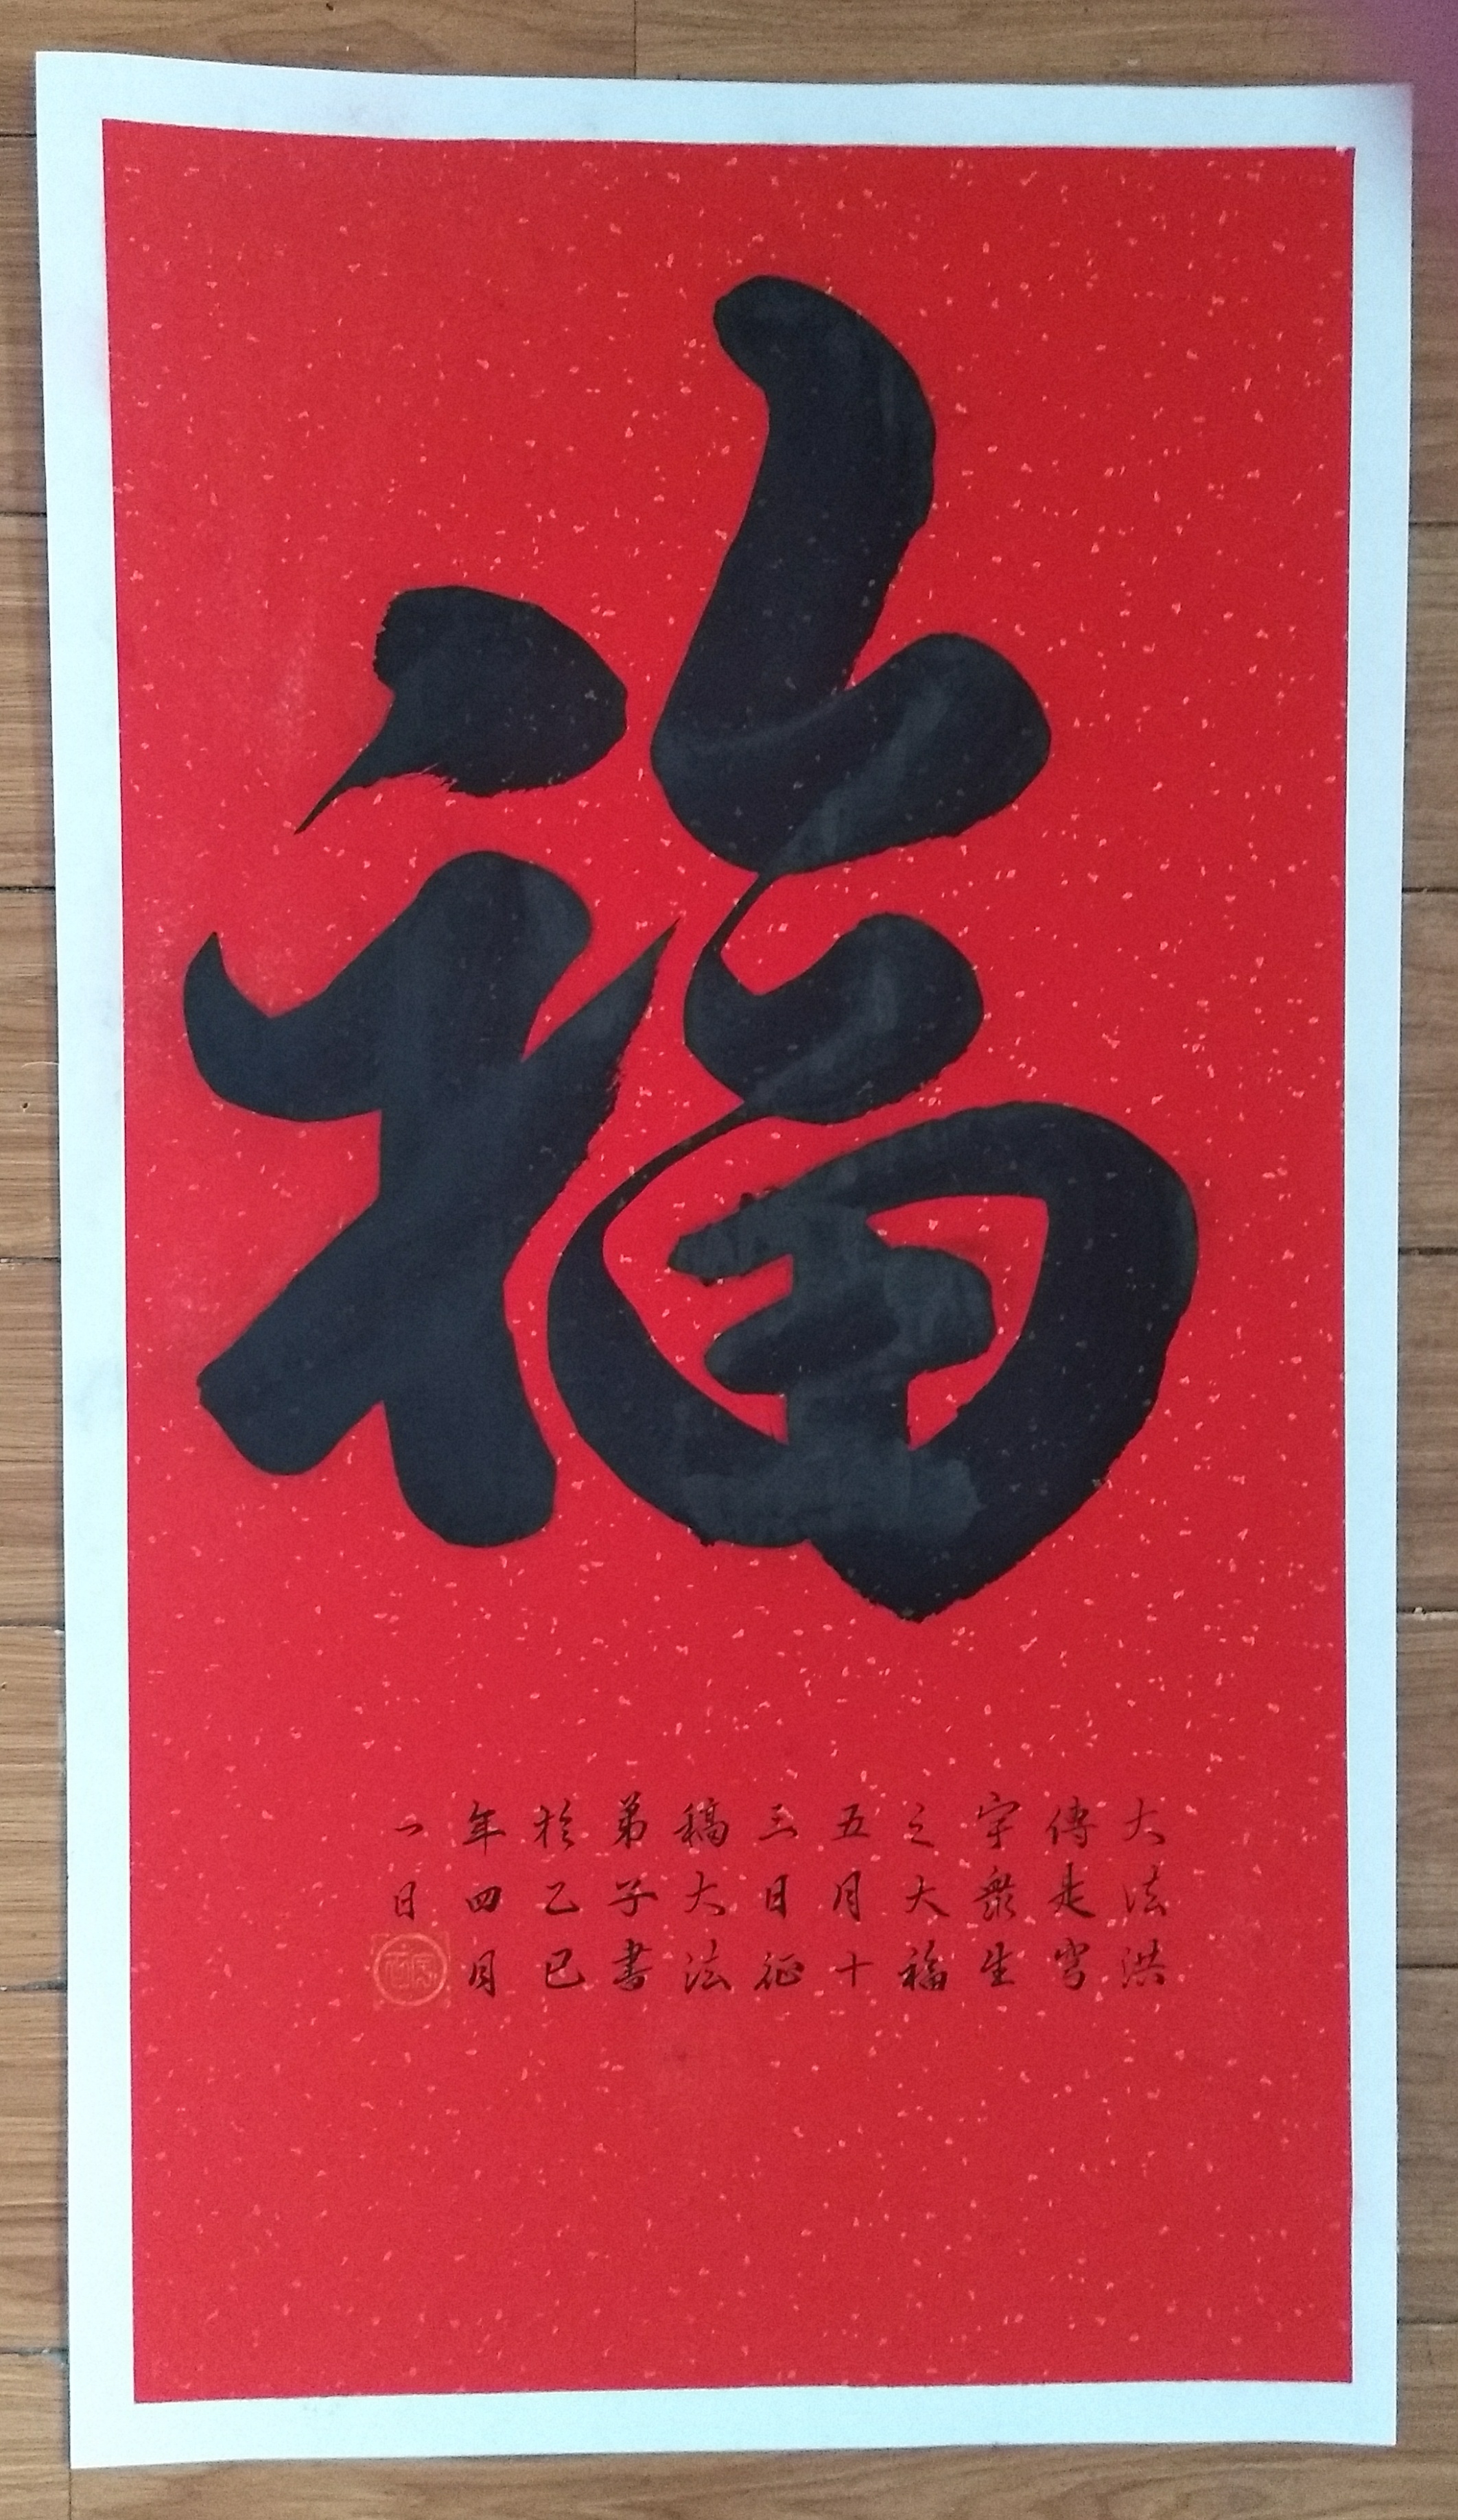 福
大法洪
傳是穹
宇衆生
之大福
五月十
三日征
稿大法
弟子書
於乙巳
年四月
一日